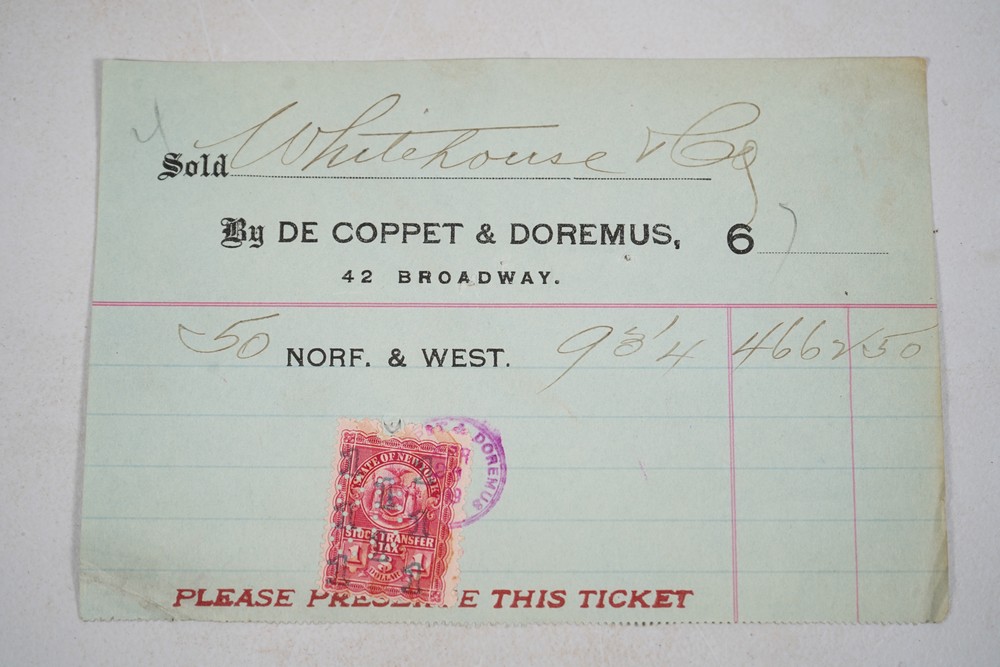 Sold Whitehouse & Co
By DE COPPET & DOREMUS, 6
42 BROADWAY.
50 NORF. & WEST. 93 1/4 4662 50
& DOREMUS
STATE OF NEW YORK
STOCK TRANSFER
TAX
1 1
DOLLAR
PLEASE PRESERVE THIS TICKET